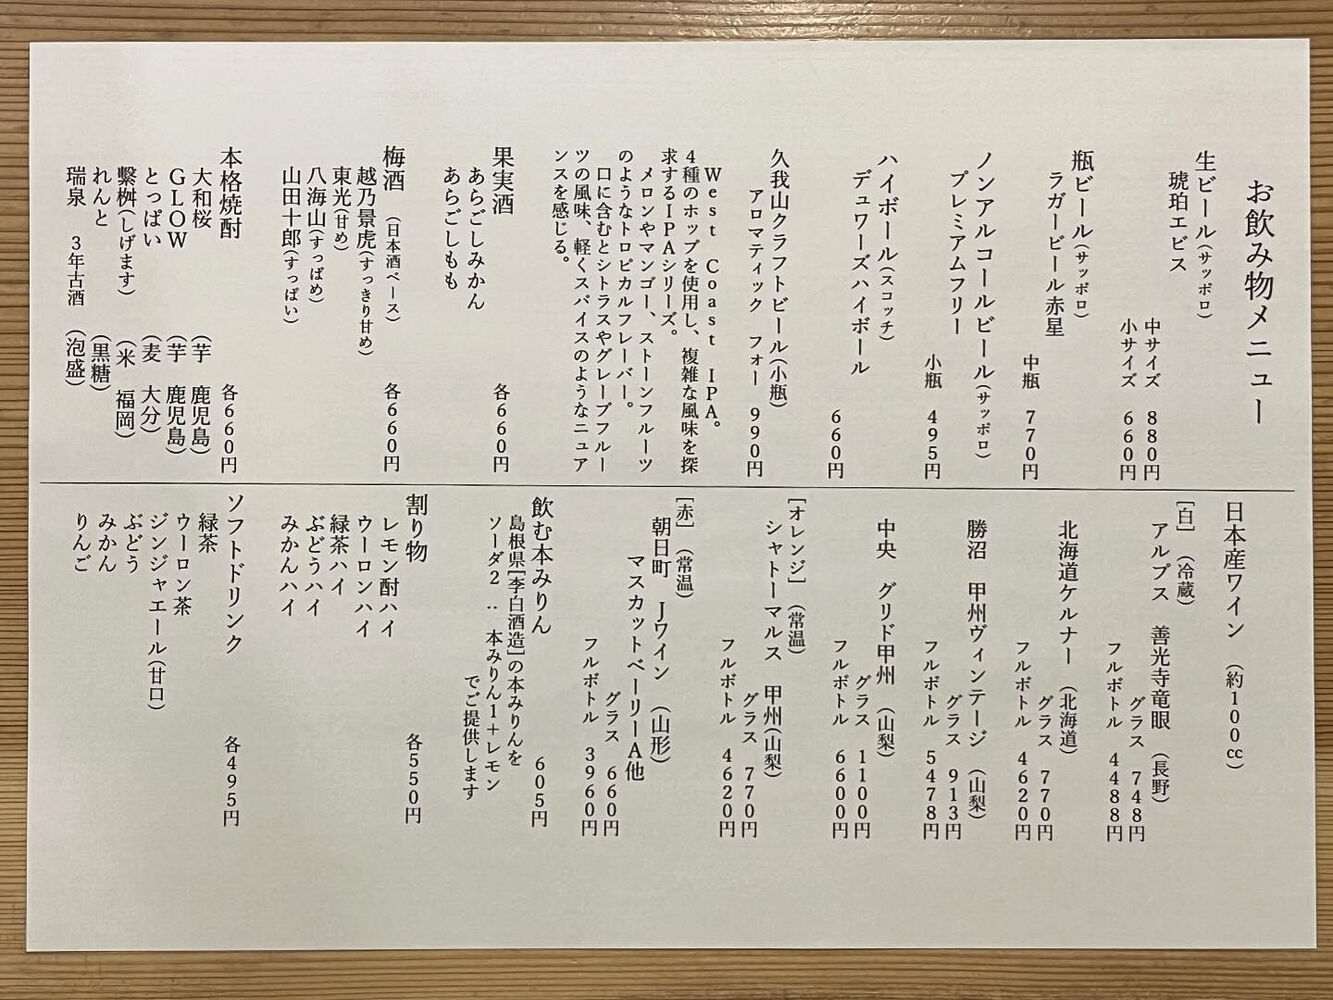 お飲み物メニュー
生ビール(サッポロ)
琥珀エビス
中サイズ 880円
小サイズ 660円
瓶ビール(サッポロ)
ラガービール赤星
中瓶 770円
ノンアルコールビール(サッポロ)
プレミアムフリー
小瓶 495円
ハイボール(スコッチ)
デュワーズハイボール
660円
久我山クラフトビール(小瓶)
アロマティック フォー 990円
West Coast IPA。
4種のホップを使用し、複雑な風味を探
求するIPAシリーズ。
メロンやマンゴー、ストーンフルーツ
のようなトロピカルフレーバー。
口に含むとシトラスやグレープフルー
ツの風味、軽くスパイスのようなニュア
ンスを感じる。
果実酒 各660円
あらごしみかん
あらごしもも
梅酒 (日本酒ベース) 各660円
越乃景虎(すっきり甘め)
東光(甘め)
八海山(すっぱめ)
山田十郎(すっぱい)
本格焼酎 各660円
大和桜 (芋 鹿児島)
GLOW (芋 鹿児島)
とっぱい (麦 大分)
繋桝(しげます) (米 福岡)
れんと (黒糖)
瑞泉 3年古酒 (泡盛)
日本産ワイン (約100cc)
[白] (冷蔵)
アルプス 善光寺竜眼 (長野)
グラス 748円
フルボトル 4488円
北海道ケルナー (北海道)
グラス 770円
フルボトル 4620円
勝沼 甲州ヴィンテージ (山梨)
グラス 913円
フルボトル 5478円
中央 グリド甲州 (山梨)
グラス 1100円
フルボトル 6600円
[オレンジ] (常温)
シャトーマルス 甲州(山梨)
グラス 770円
フルボトル 4620円
[赤] (常温)
朝日町 Jワイン (山形)
マスカットベーリーA他
グラス 660円
フルボトル 3960円
飲む本みりん 605円
島根県[李白酒造]の本みりんを
ソーダ2:本みりん1+レモン
でご提供します
割り物 各550円
レモン酎ハイ
ウーロンハイ
緑茶ハイ
ぶどうハイ
みかんハイ
ソフトドリンク 各495円
緑茶
ウーロン茶
ジンジャエール(甘口)
ぶどう
みかん
りんご